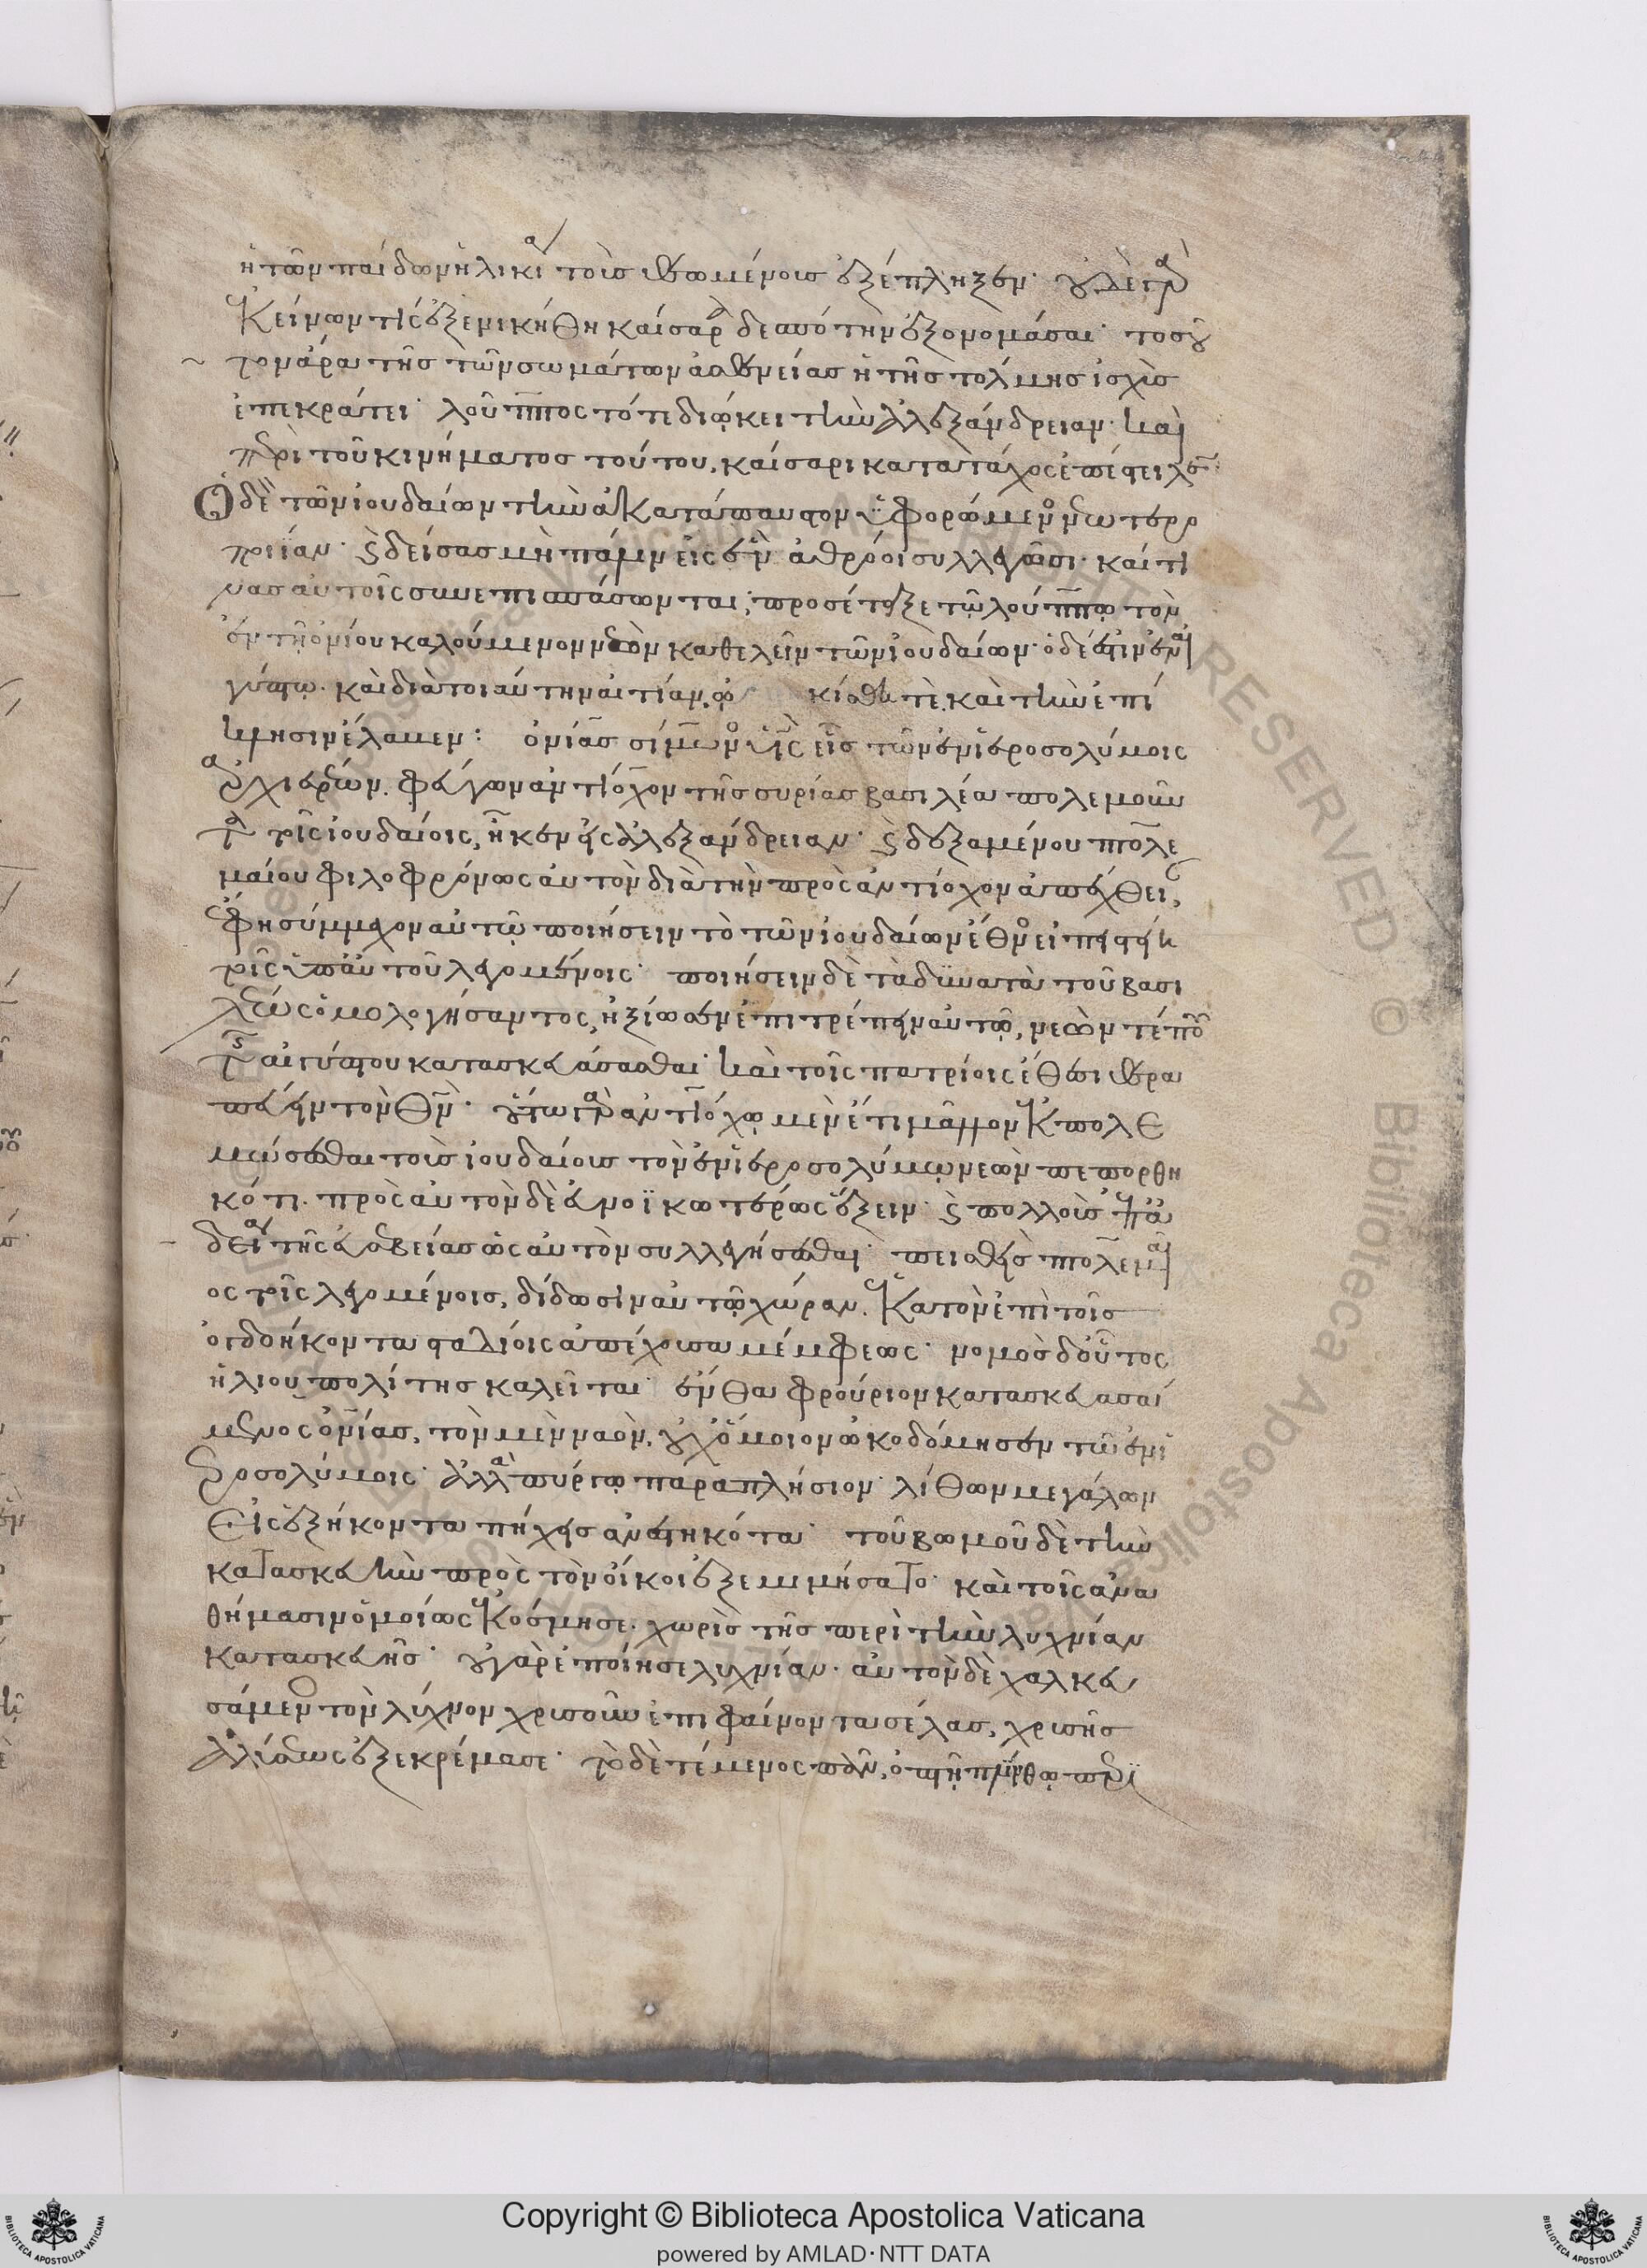 ἡ τῶν παίδων ἡλικία τοὺς θεωμένους ἐξέπληξεν· οὐδὲ γὰρ
ἐκείνων τίς ἐξενικήθη καίσαρα δεσπότην ἐξονομάσαι· τοσοῦ
τον ἄρα τῆς τῶν σωμάτων ἀσθενείας ἡ τῆς τόλμης ἰσχὺς
ἐπεκράτει· λοῦππος τότε διώκει τὴν ἀλεξάνδρειαν· καὶ
περὶ τοῦ κινήματος τούτου, καίσαρι κατὰ τάχος ἐπέστειλεν·
Ὁ δὲ τῶν ἰουδαίων τὴν ἀκατάπαυστον ὑφορώμενος νεωτερο
ποιΐαν· καὶ δείσας μὴ πάλιν εἰς ἓν ἀθρόοι συλλεγῶσι· καί τι
νας αὐτοῖς συνεπισπάσωνται, προσέταξε τῷ λούππῳ τὸν
ἐν τῇ ὀνίου καλούμενον νεὼν καθελεῖν τῶν ἰουδαίων· ὁ δέ ἐστιν ἐν αἰ
γύπτῳ· καὶ διὰ τοιαύτην αἰτίαν, ᾠκίσθη τὲ καὶ τὴν ἐπί
κλησιν ἔλαβεν: ὀνίας σίμωνος υἱὸς εἷς τῶν ἐν ἱεροσολύμοις
ἀρχιερέων. φεύγων ἀντίοχον τῆς συρίας βασιλέα πολεμοῦν
τα τοῖς ἰουδαίοις, ἧκεν εἰς ἀλεξάνδρειαν· καὶ δεξαμένου πτολε
μαίου φιλοφρόνως αὐτὸν διὰ τὴν πρὸς ἀντίοχον ἀπέχθειαν,
ἔφη σύμμαχον αὐτῷ ποιήσειν τὸ τῶν ἰουδαίων ἔθνος εἰ πεισθείη
τοῖς ὑπ' αὐτοῦ λεγομένοις· ποιήσειν δὲ τὰ δυνατὰ τοῦ βασι
λέως ὁμολογήσαντος, ἠξίωσεν ἐπιτρέπειν αὐτῷ, νεὼν τέ που
τῆς αἰγύπτου κατασκευάσασθαι· καὶ τοῖς πατρίοις ἔθεσι θερα
πεύειν τὸν θν· οὕτως γὰρ ἀντιόχῳ μὲν ἔτι μᾶλλον ἐκπολε
μώσεσθαι τοὺς ἰουδαίους τὸν ἐν ἱεροσολύμοις νεὼν πεπορθη
κότι. πρὸς αὐτὸν δὲ εὐνοϊκωτέρως ἕξειν· καὶ πολλοὺς ἐπ' ἀ
δείᾳ τῆς εὐσεβείας ὡς αὐτὸν συλλεγήσεσθαι· πεισθεὶς πτολεμαῖ
ος τοῖς λεγομένοις, δίδωσιν αὐτῷ χώραν. ἑκατὸν ἐπὶ τοῖς
ὀγδοήκοντα σταδίοις ἀπέχουσαν μέμφεως· νομὸς δ' οὗτος
ἡλιουπολίτης καλεῖται· ἔνθα φρούριον κατασκευασά
μενος ὀνίας, τὸν μὲν ναὸν, οὐχ ὅμοιον ᾠκοδόμησεν τῷ ἐν ἱ
εροσολύμοις· ἀλλὰ πύργῳ παραπλήσιον· λίθων μεγάλων
εἰς ἑξήκοντα πήχεις ἀνεστηκότα· τοῦ βωμοῦ δὲ τὴν
κατασκευὴν πρὸς τὸν οἴκοι ἐξεμιμήσατο· καὶ τοῖς ἀνα
θήμασιν ὁμοίως ἐκόσμησε. χωρὶς τῆς περὶ τὴν λυχνίαν
κατασκευῆς· οὐ γὰρ ἐποίησε λυχνίαν. αὐτὸν δὲ χαλκευ
σάμενος τὸν λύχνον χρυσοῦν ἐπιφαίνοντα σέλας, χρυσῆς
ἁλύσεως ἐξεκρέμασε· τὸ δὲ τέμενος πᾶν, ὀπτῇ πλίνθῳ περι
Copyright © Biblioteca Apostolica Vaticana
powered by AMLAD·NTT DATA